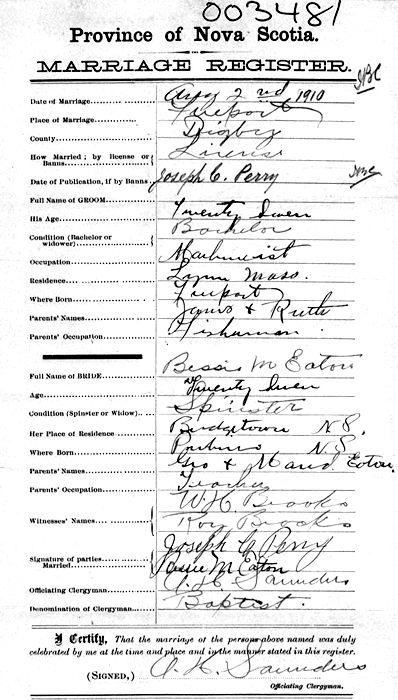 003481
Province of Nova Scotia.
MARRIAGE REGISTER.
Date of Marriage Aug 2nd 1910
Place of Marriage Freeport
County Digby
How Married; by license or Banns License
Date of Publication, if by Banns
Full Name of GROOM Joseph C. Perry
His Age Twenty Seven
Condition (Bachelor or widower) Bachelor
Occupation Machinist
Residence Lynn Mass.
Where Born Freeport
Parents' Names James & Ruth
Parents' Occupation Fisherman.
Full Name of BRIDE Bessie M Eaton
Age Twenty Seven
Condition (Spinster or Widow) Spinster
Her Place of Residence Bridgetown N S.
Where Born N S
Parents' Names Geo & Maud Eaton
Parents' Occupation Teacher
Witnesses' Names W. H. Brooks
Roy Brooks
Signature of parties Married Joseph C Perry
Bessie M Eaton
Officiating Clergyman O. H. Saunders
Denomination of Clergyman Baptist.
I Certify, That the marriage of the persons above named was duly
celebrated by me at the time and place and in the manner stated in this register.
(SIGNED,) O. H. Saunders
Officiating Clergyman.